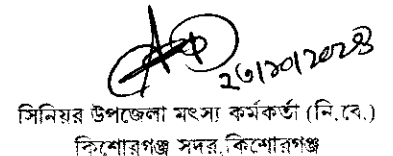 ২৬/১০/২০২৪
সিনিয়র উপজেলা মৎস্য কর্মকর্তা (নি.বে.)
কিশোরগঞ্জ সদর, কিশোরগঞ্জ